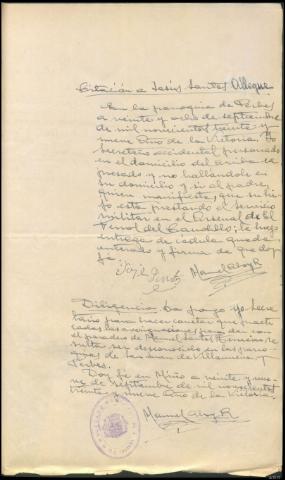 Citación a Jesús Santos Allegue
En la parroquia de Perbes
a veinte y ocho de septiembre
de mil novecientos treinta y
nueve Año de la Victoria. Yo
Secretario accidental personado
en el domicilio del arriba ex-
presado y no hallandole en
su domicilio y si al padre,
quien manifiesta, que su hi-
jo esta prestando el servicio
militar en el Arsenal de El
Ferrol del Caudillo; le hago
entrega de cedula queda
enterado y firma de que doy
fé
Manuel
Diligencia. La pongo yo Secre
tario para hacer constar que practi
cadas las averiguaciones para dar con
el paradero de Manuel Santos re
sulta ser desconocido en las parro
quias de San Juan de Villanueva y
Perbes.
Doy fé en Miño a veinte y nue
ve de septiembre de mil novecientos
treinta y nueve Año de la Victoria.
Manuel